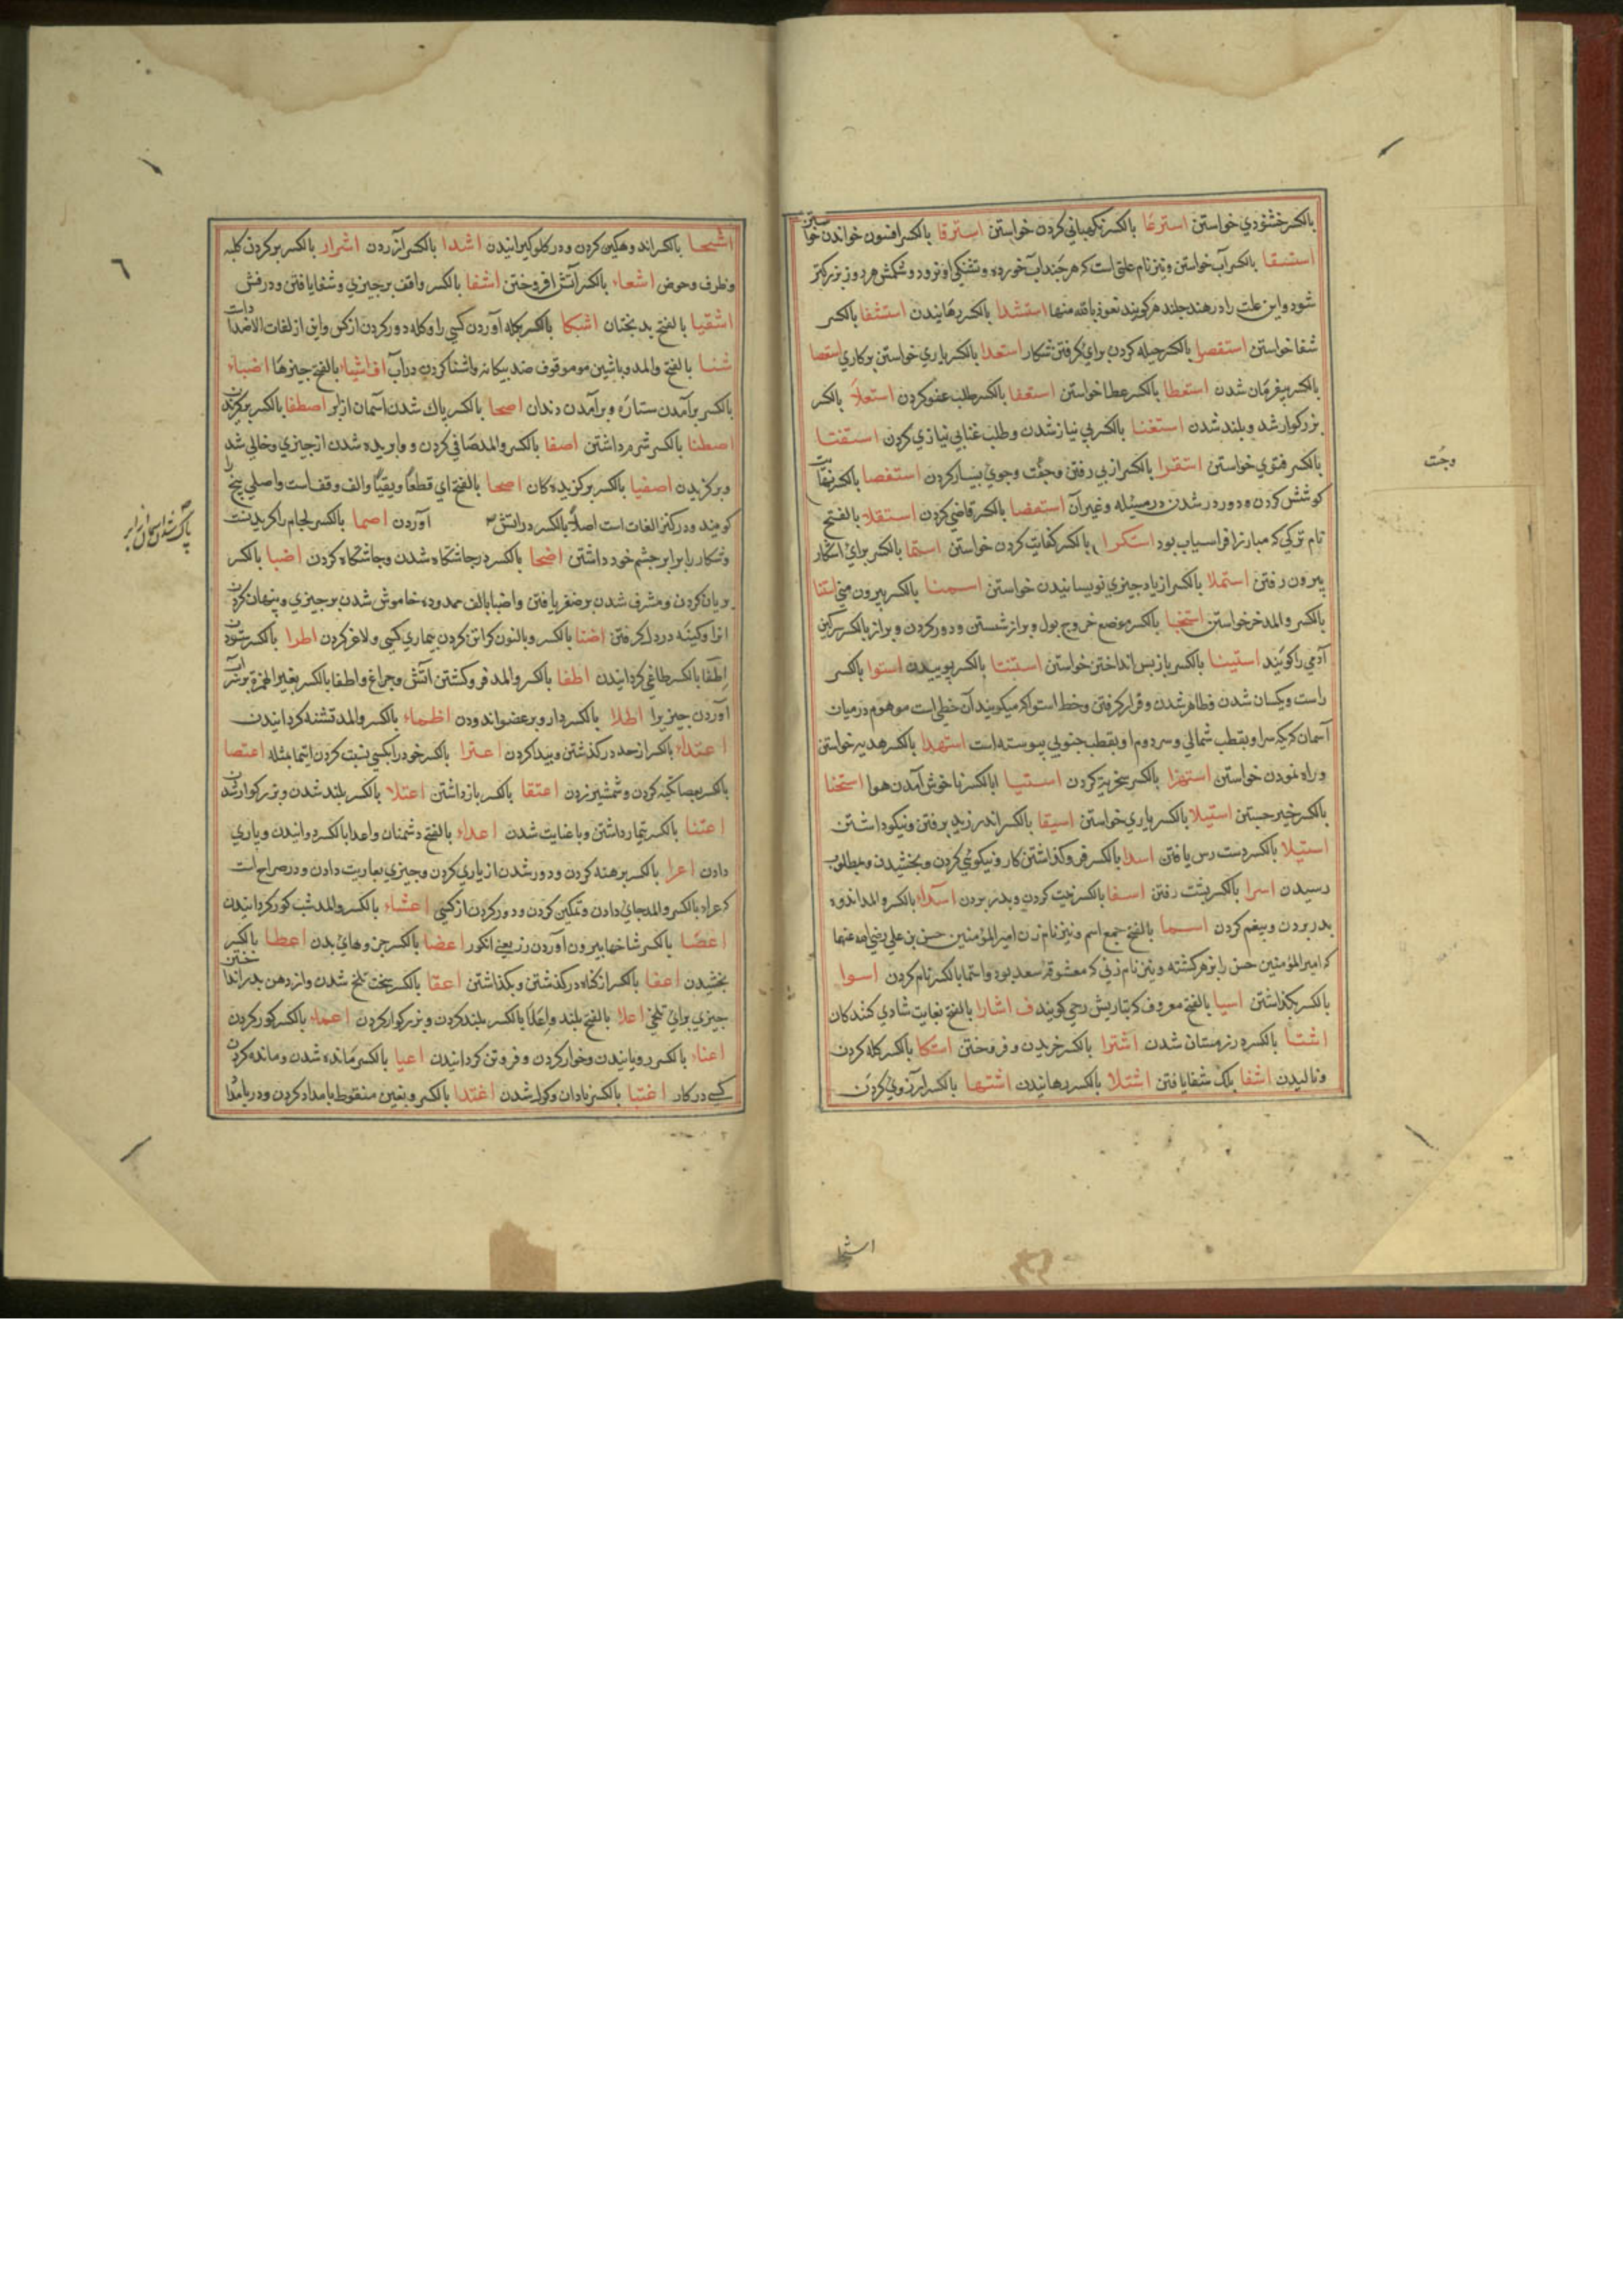 بالكسر خشنودي خواستن استرعا بالكسر نكهباني كردن خواستن استرقا بالكسر افسون خواندن خواستن
استسقا بالكسر آب خواستن ونيز نام علتي است كه هر چند اب خورد و تشنكي او نرود و شكمش هر روز بزركتر
شود واين علت را در هند جلندهر كويند نعوذ بالله منها استشدا بالكسر رهانيدن استشفا بالكسر
شفا خواستن استفصا بالكسر حيله كردن براي كرفتن شكار استعدا بالكسر ياري خواستن بر كاري استعصا
بالكسر بيفرمان شدن استعطا بالكسر عطا خواستن استعفا بالكسر طلب عفو كردن استعلا بالكسر
بزركوار شد و بلند شدن استغنا بالكسر بي نياز شدن و طلب غنا بي نيازي كردن استفتا
بالكسر فتوي خواستن استقرا بالكسر از پي رفتن وجفت وجوي بسيار كردن استقصا بالكسر نهايت
كوشش كردن و دور در شدن در مسئله وغير آن استقضا بالكسر قاضي كردن استقلا بالفتح
نام تركي كه مبارز افراسياب بود استكرا بالكسر كفايت كردن خواستن استما بالكسر براي شكار
بيرون رفتن استملا بالكسر از ياد چيزي نويسانيدن خواستن استمنا بالكسر بيرون مني استقا
بالكسر والمد خر خواستن استنجا بالكسر موضع خروج بول و براز شستن و دور كردن و براز بالكسر سركين
آدمي را كويند استينا بالكسر باز پس انداختن خواستن استنتا بالكسر پوييدن استوا بالكسر
راست و يكسان شدن و ظاهر شدن و قرار كرفتن و خط استوا كه ميكويند آن خطي است موهوم در ميان
آسمان كه يك سر او بقطب شمالي و سر دوم او بقطب جنوبي پيوسته است استهدا بالكسر هديه خواستن
و راه نمودن خواستن استهزا بالكسر سخريه كردن استيا بالكسر ناخوش آمدن هوا استخنا
بالكسر خير جستن استيلا بالكسر ياري خواستن اسيقا بالكسر اندرز پذيرفتن و نيكو داشتن
استيلا بالكسر دست رس يافتن اسدا بالكسر فرو كذاشتن كار و نيكوئي كردن و بخشيدن و مطلوب
رسيدن اسرا بالكسر بشب رفتن اسفا بالكسر نيت كردن و بدر بردن اسلاء بالكسر والمد اندوه
بدر بردن و بيغم كردن اسما بالفتح جمع اسم و نيز نام زن امير المؤمنين حسن بن علي رضي الله عنهما
كه امير المؤمنين حسن را بزهر كشته و نيز نام زني كه معشوقه سعد بود و اسما بالكسر نام كردن اسوا
بالكسر بكذاشتن اسيا بالفتح معروف كه بتازيش رحي كويند ف اشارا بالفتح بغايت شادي كنندكان
اشتا بالكسر در زمستان شدن اشترا بالكسر خريدن و فروختن اشتكا بالكسر كله كردن
و ناليدن اشفا بالك شفا يافتن اشتلا بالكسر رهانيدن اشتها بالكسر آرزوي كردن
وجُست
اشجا
اشجا بالكسر اندوهكين كردن و در كلو كيرانيدن اشدا بالكسر آزردن اشرار بالكسر بر كردن كلبه
وظرف وحوض اشعاء بالكسر آتش افروختن اشفا بالكسر واقف بر چيزي وشفا يافتن ودرفش
اشقيا بالفتح بدبختان اشكا بالكسر بكله آوردن كسي را و كله دور كردن از كس واين از لغات الاضداد است
شنا بالفتح والمد و با شين موموقوف ضد بيكانه و اشنا كردن در آب اف اشياء بالفتح چيزها اضباء
بالكسر بر آمدن ستاره و بر آمدن دندان اصحا بالكسر پاك شدن آسمان از ابر اصطفا بالكسر بر كزيدن
اصطنا بالكسر شرم داشتن اصفا بالكسر والمد صافي كردن و وابريده شدن از چيزي وخالي شد
و بر كزيدن اصفيا بالكسر بركزيده كان اصحا بالفتح اي قطعًا ويقينًا والف وقف است واصلي بيخ را
كويند ودر كنز اللغات است اصلاً بالكسر در اتش آوردن اصما بالكسر لجام را كزيدن است
و شكار را برابر چشم خود داشتن اضحا بالكسر در چاشتكاه شدن وچاشتكاه كردن اضبا بالكسر
بريان كردن و مشرف شدن بر ضفر يافتن واضبا بالف ممدوده خاموش شدن بر چيزي و پنهان كردن
انرا و كينه در دل كرفتن اضنا بالكسر و بالنون كران كردن بيماري كسي و لاغر كردن اطرا بالكسر ستودن
اطغا بالكسر طاغي كردانيدن اطفا بالكسر والمد فرو كشتن آتش و چراغ واطفا بالكسر بغير الهمزة بر سر آب
آوردن چيزيرا اطلا بالكسر دارو بر عضو اندودن اظماء بالكسر والمد تشنه كردانيدن
اعتداء بالكسر از حد در كذشتن و پيدا كردن اعتزا بالكسر خود را بكسي نسبت كردن اعتصا
بالكسر بعصا تكيه كردن و شمشير زدن اعتقا بالكسر باز داشتن اعتلا بالكسر بلند شدن و بزركوار شدن
اعتنا بالكسر تيمار داشتن و با عنايت شدن اعداء بالفتح دشمنان واعدا بالكسر دوانيدن و ياري
دادن اعرا بالكسر برهنه كردن و دور شدن از ياري كردن و چيزي بعاريت دادن و در صراح است
كه عراء بالكسر والمد جائي دادن و تمكين كردن و دور كردن از كسي اعشاء بالكسر والمد شب كور كردانيدن
اعصّا بالكسر شاخها بيرون آوردن رز يعني انكور اعضا بالكسر جز وهاي بدن اعطا بالكسر
بخشيدن اعفا بالكسر از كناه در كذشتن و بكذاشتن اعقا بالكسر سخت تلخ شدن و از دهن بدر انداختن
چيزي براي تلخي اعلا بالفتح بلند و اعلا بالكسر بلند كردن و بزركوار كردن اعماء بالكسر كور كردن
اعناء بالكسر رويانيدن و خوار كردن و فروتن كردانيدن اعيا بالكسر مانده شدن و مانده كردن
كسي در كار اغتبا بالكسر نادان و كول شدن اغتدا بالكسر و بغين منقوطه بامداد كردن و در بامداد
٦
پاك شدن آسمان از ابر